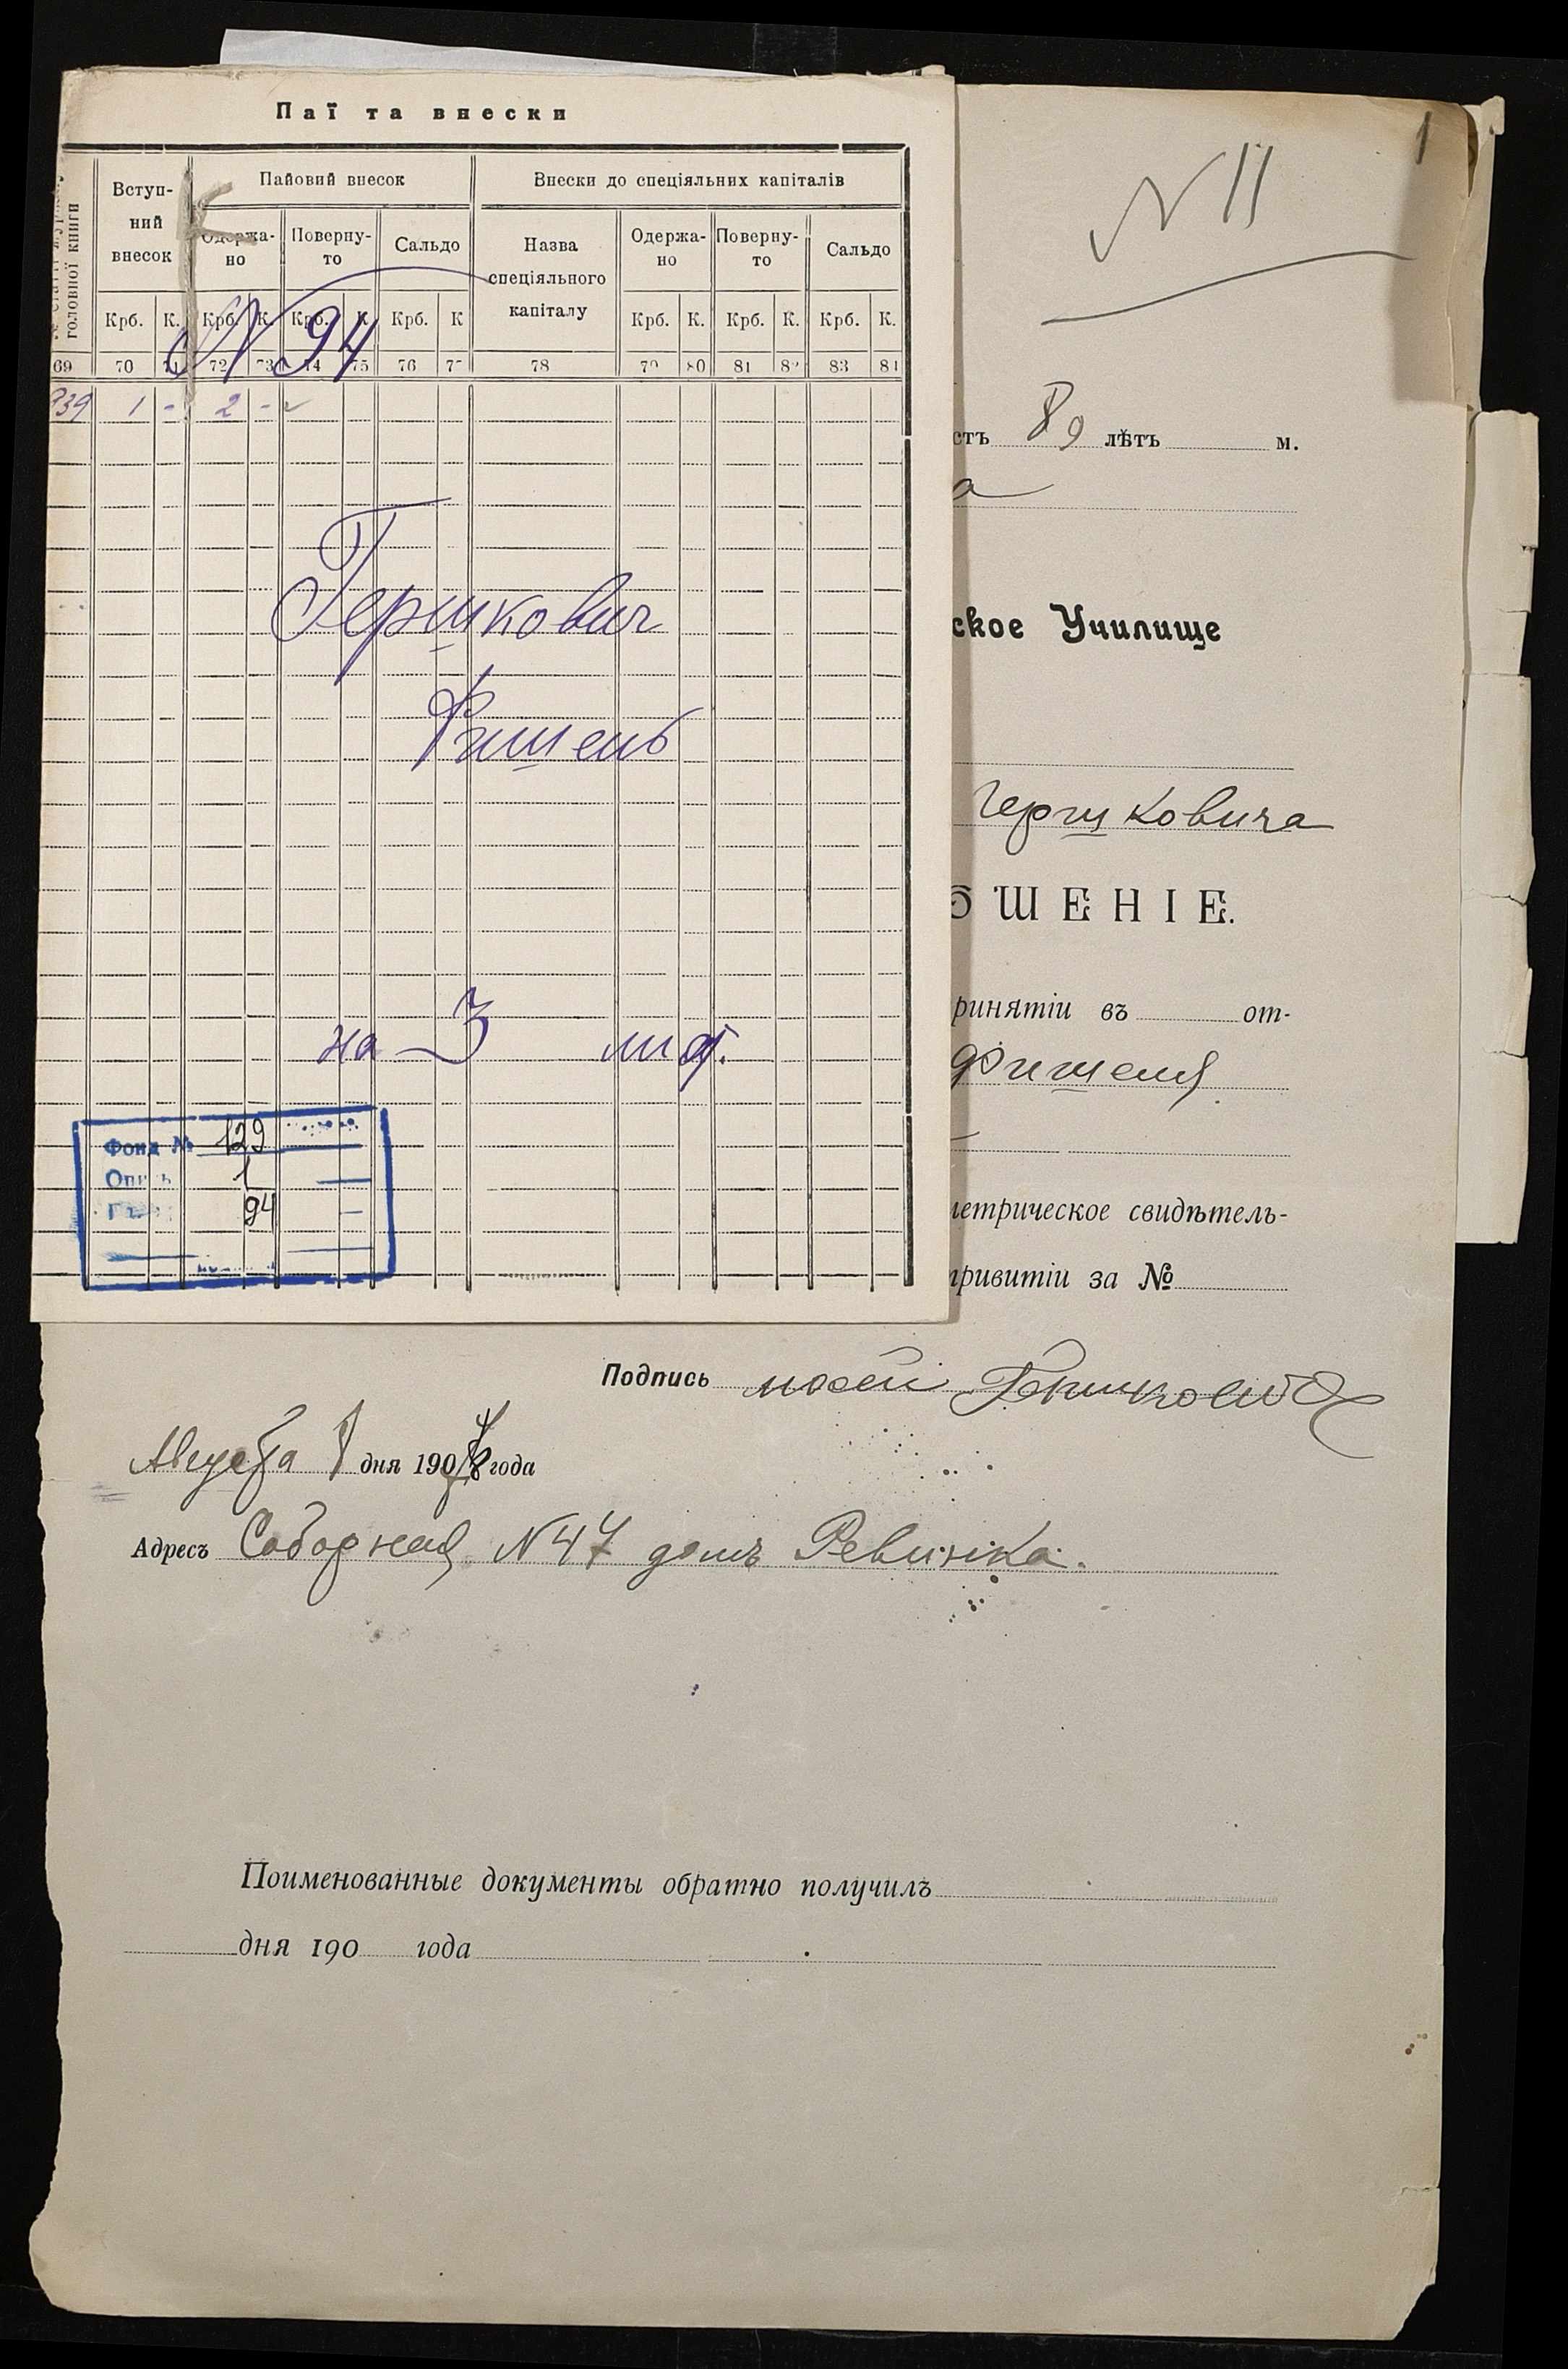 Паї та внески
головної книги
Вступ-
ний
внесок
Пайовий внесок
Внески до спеціяльних капіталів
Одержа-
но
Поверну-
то
Сальдо
Назва
спеціяльного
капіталу
Одержа-
но
Поверну-
то
Сальдо
Крб. К. Крб. К. Крб. К Крб. К Крб. К. Крб. К. Крб. К.
69 70 71 72 73 74 75 76 77 78 79 80 81 82 83 84
939 1 - 2 -
N 94
Гершкович
Фишель
на 3 лист.
Фонд № 129
Опись 1
94
N 11
1
сть 89 лѣтъ м.
а
ское Училище
Гершковича
ОШЕНІЕ.
ринятіи въ от-
Фишеля
метрическое свидѣтель-
привитіи за №
Подпись мосей Гершковичъ
Августа 8 дня 1908 года
Адресъ Соборная N 47 домъ Ревинка.
Поименованные документы обратно получилъ
дня 190 года